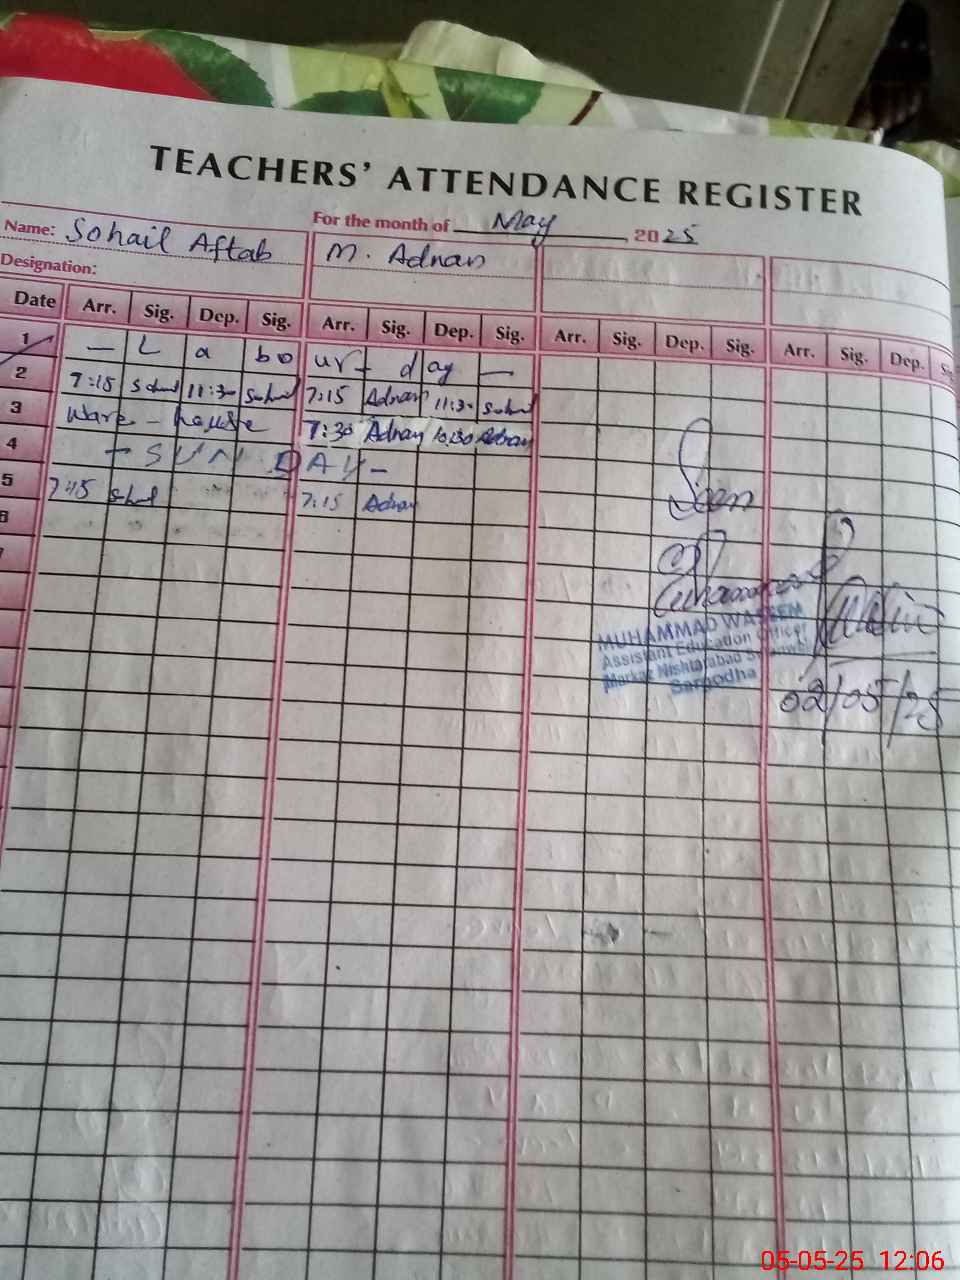 TEACHERS' ATTENDANCE REGISTER
For the month of May, 2025
Name: Sohail Aftab M. Adnan
Designation:
Date Arr. Sig. Dep. Sig. Arr. Sig. Dep. Sig. Arr. Sig. Dep. Sig. Arr. Sig. Dep.
1 — L a bo ur - d ay —
2 7:15 Sohail 11:30 Sohail 7:15 Adnan 11:30 Sohail
3 Ware - house 7:30 Adnan 10:30 Adnan
4 - SUNDAY -
5 7:15 Sohail 7:15 Adnan
6
Seen
MUHAMMAD WASEEM
Assistant Education Officer
Markaz Nishtarabad
Sargodha
02/05/25
05-05-25 12:06